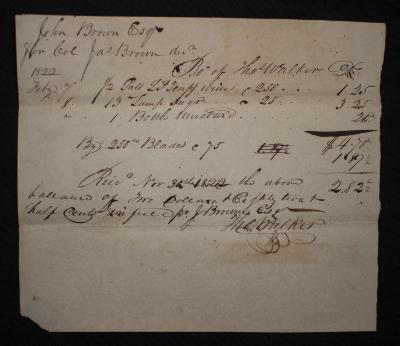 John Brown Esqr
for Col Jas Brown decd
1822 Bot of Thos Walker Dr
Feby 7 1/2 Gall Teneff wine @ 250 1.25
" 8 13 lb Lump Sugr @ 25 3 25
" 1 Bottle Mustard 25
$4.75
By 250 lb Blades @ 75 1.87 1/2
2.82 1/2
Recd Novr 1822 the above
ballance of Two Dollars & Eighty two &
half Cents in full pr J Brown Esqr
Tho. Walker